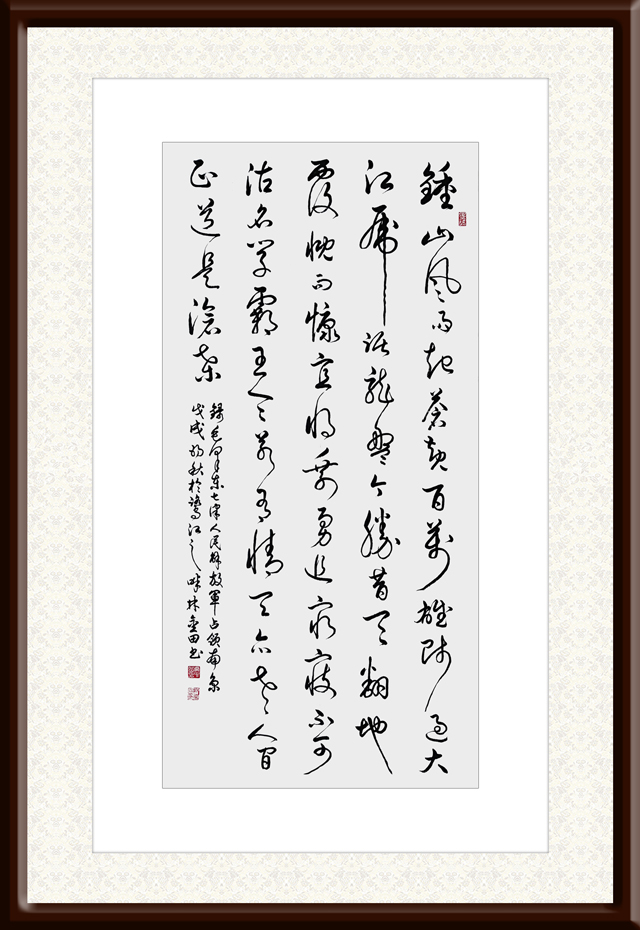 鍾山風雨起蒼黄百萬雄師過大
江虎踞龍盤今勝昔天翻地
覆慨而慷宜將剩勇追窮寇不可
沽名學霸王天若有情天亦老人間
正道是滄桑
錄毛澤東七律人民解放軍占領南京
戊戌初秋於鷺江之畔林金田书